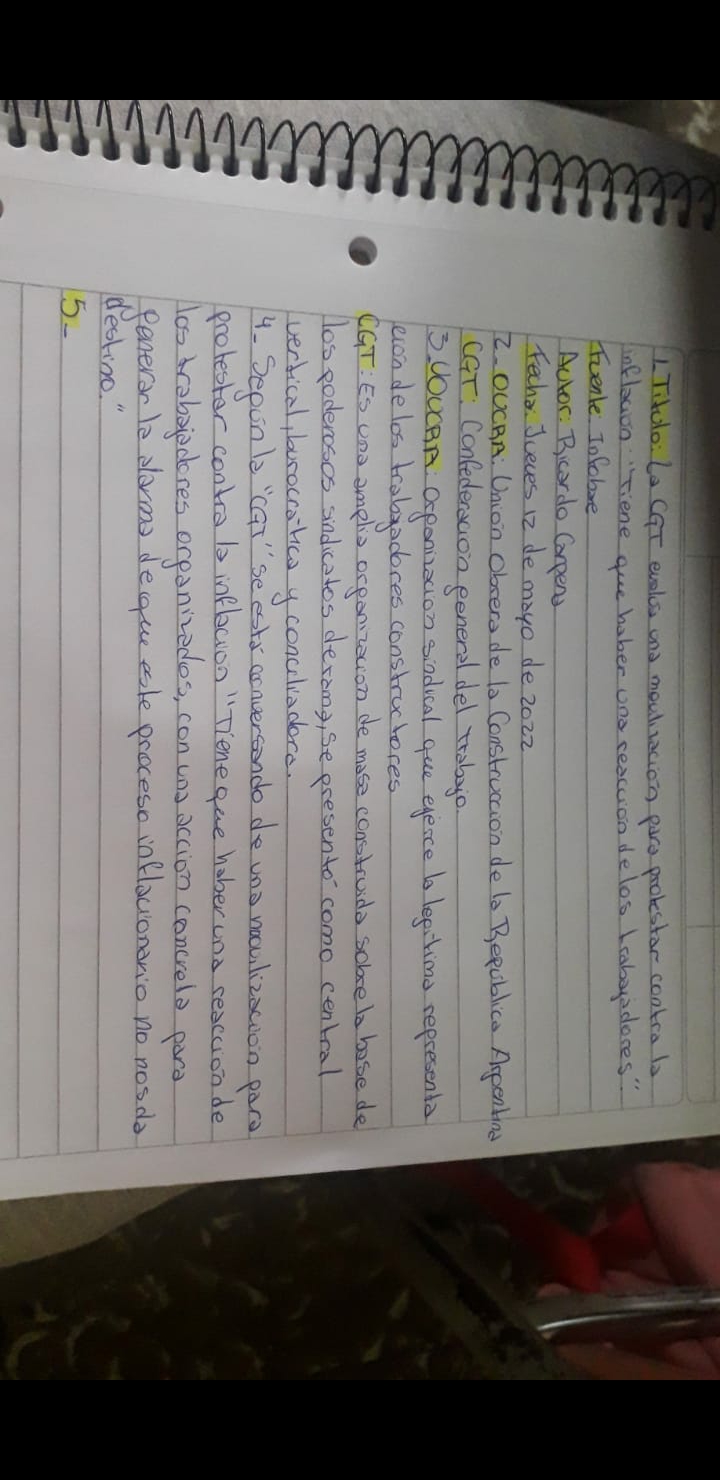 1. Titulo: La CGT evalúa una movilización para protestar contra la
inflación: "Tiene que haber una reacción de los trabajadores".
Fuente: Infobae
Autor: Ricardo Carpena
Fecha: Jueves 12 de mayo de 2022
2_ OUCRA: Unión Obrera de la Construcción de la República Argentina
CGT: Confederación general del trabajo.
3_ UOUCRA: Organización sindical que ejerce la legítima representa
ción de los trabajadores constructores
CGT: Es una amplia organización de masa construida sobre la base de
los poderosos sindicatos de rama, se presentó como central
vertical, burocrática y conciliadora.
4_ Según la "CGT" se está conversando de una movilización para
protestar contra la inflación "Tiene que haber una reacción de
los trabajadores organizados, con una acción concreta para
generar la alarma de que este proceso inflacionario no nos da
destino"
5_